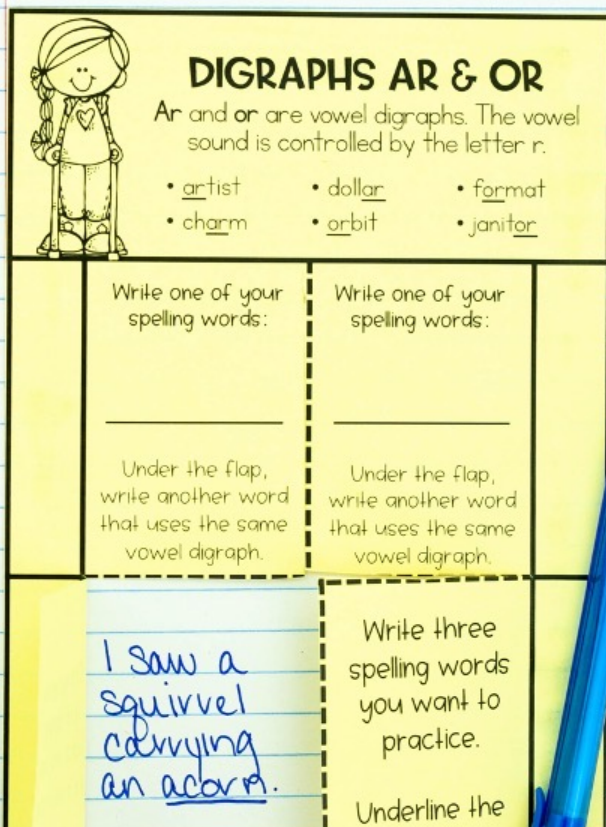 DIGRAPHS AR & OR
Ar and or are vowel digraphs. The vowel
sound is controlled by the letter r.
• artist • dollar • format
• charm • orbit • janitor
Write one of your
spelling words:
Under the flap,
write another word
that uses the same
vowel digraph.
Write one of your
spelling words:
Under the flap,
write another word
that uses the same
vowel digraph.
I saw a
squirrel
carrying
an acorn.
Write three
spelling words
you want to
practice.
Underline the